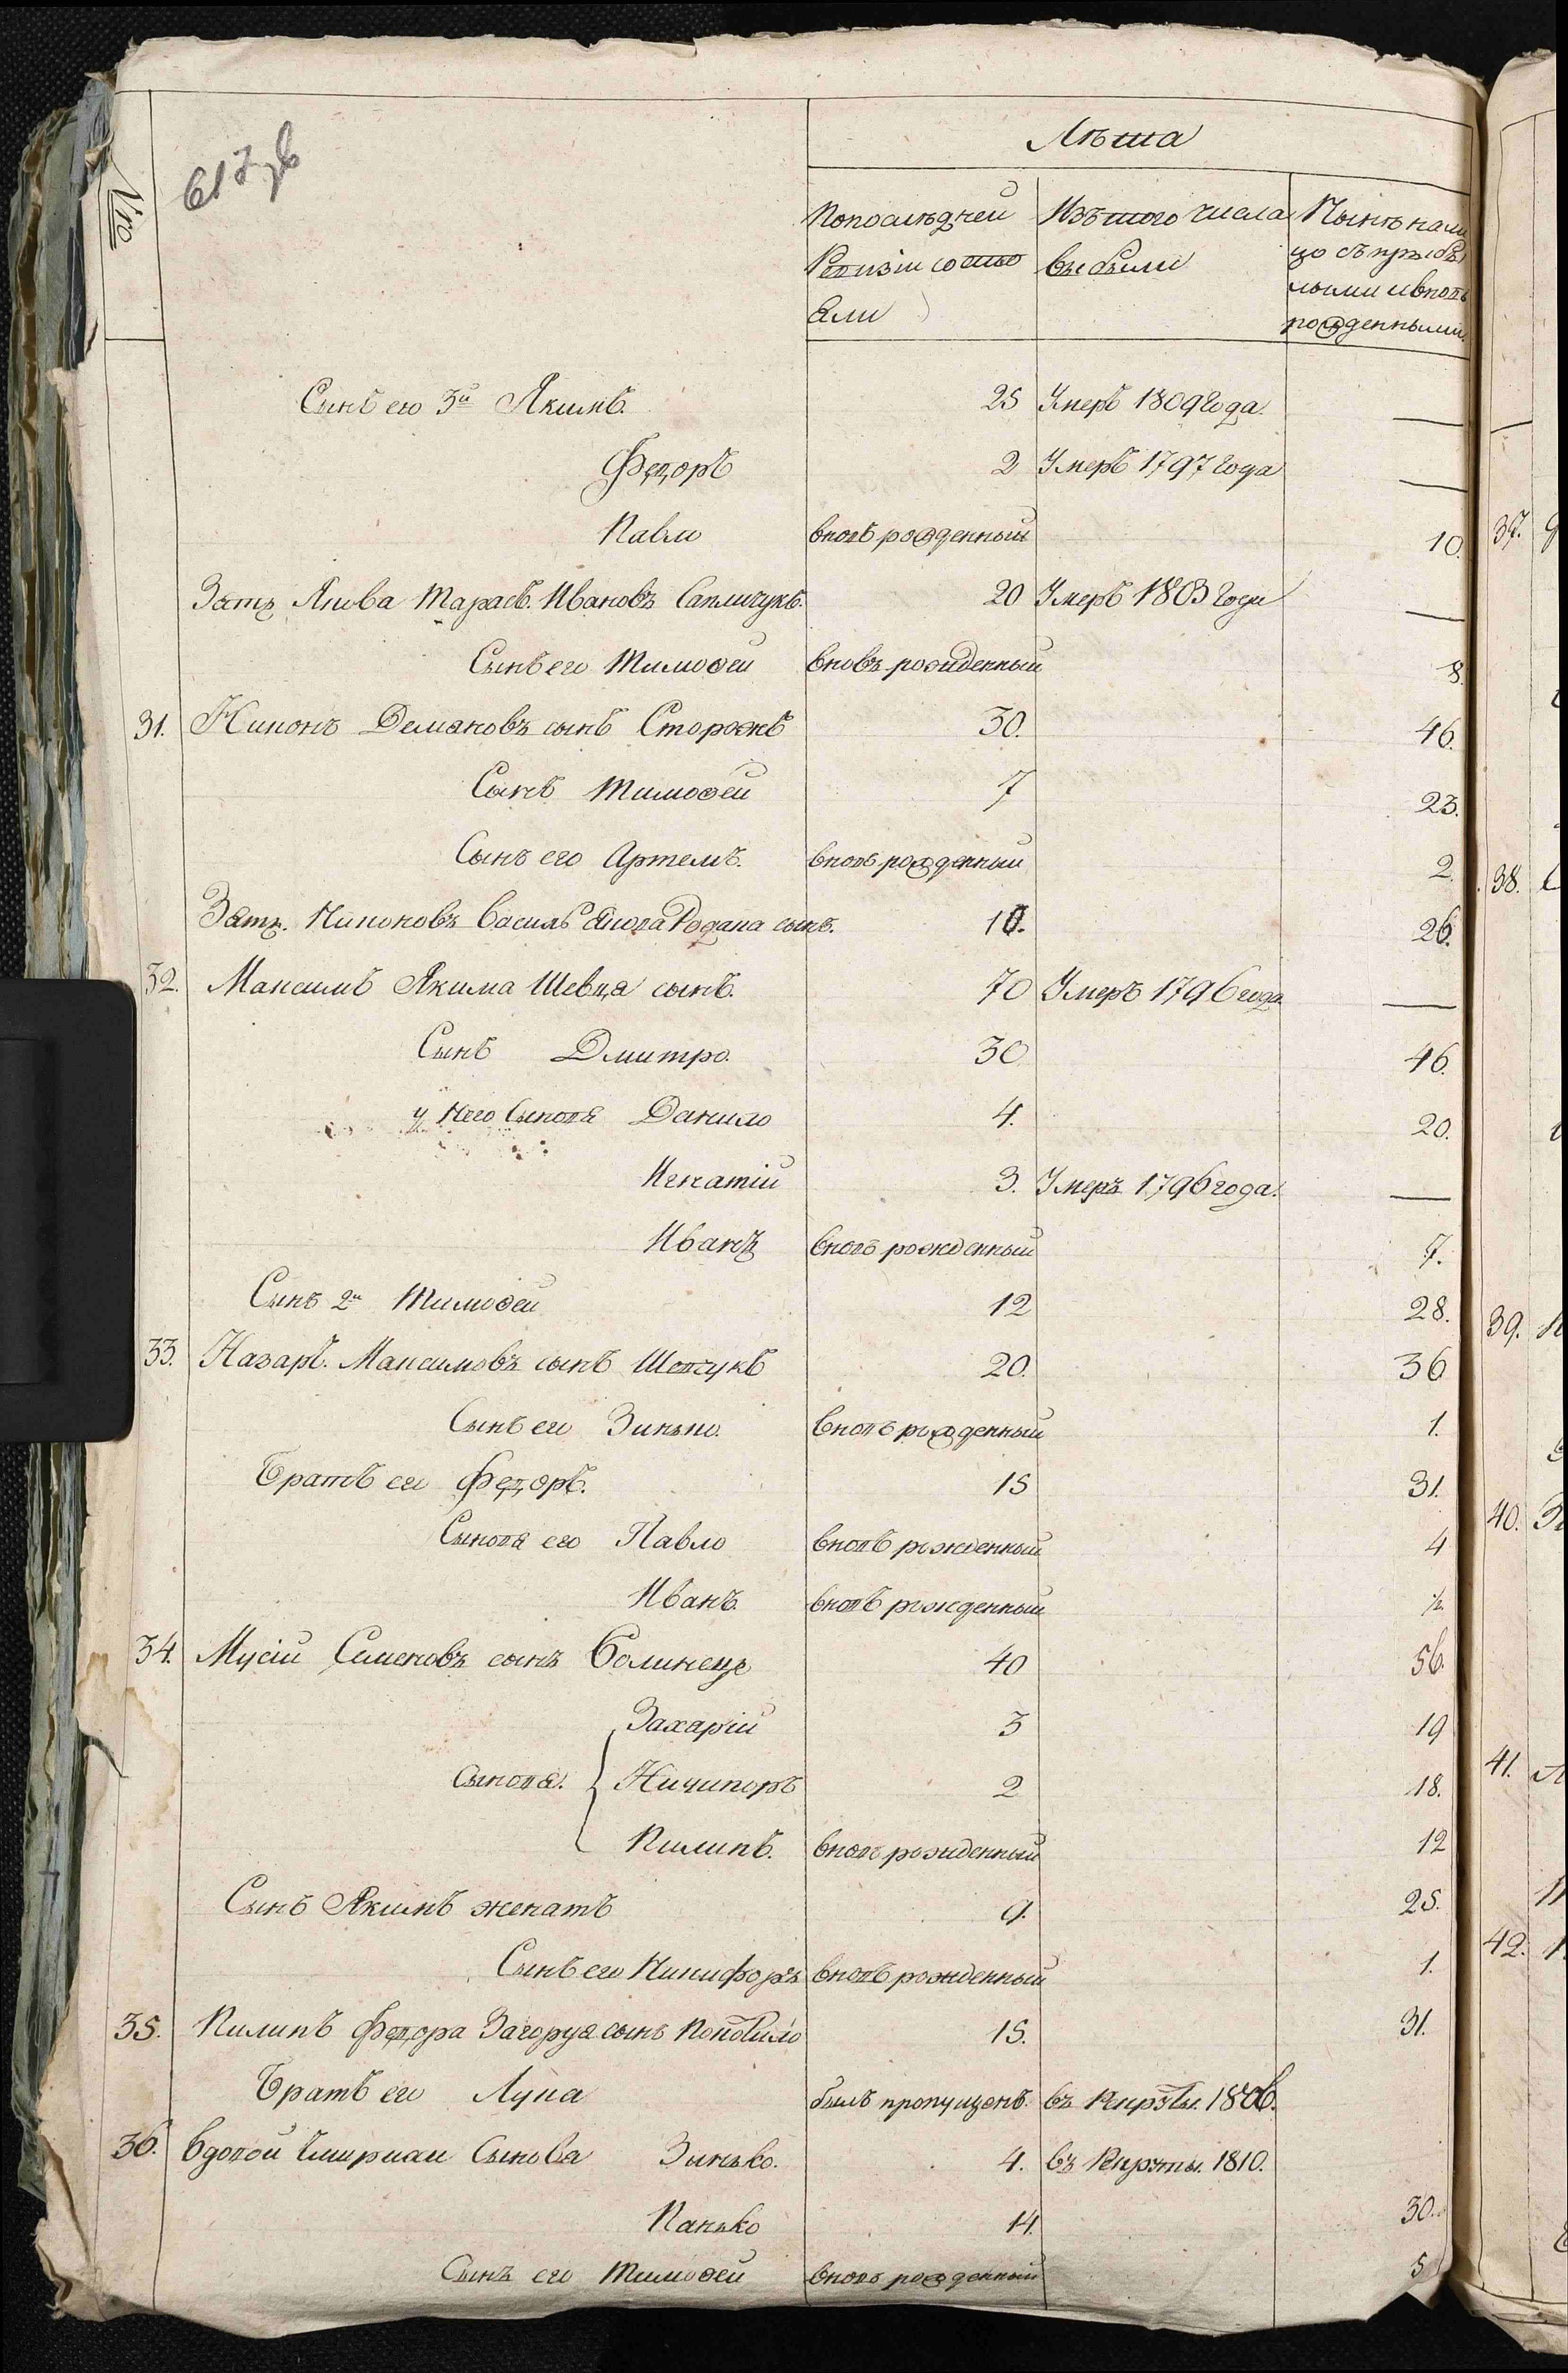 617 зв
Nro
Лѣта
Попослѣдней
Ревизіи состо
яли
Изътого числа
выбыли
Нынѣ нали
цо съ прибы
лыми ивновь
рожденными
Сынъ его 3й Якимъ. 25 Умеръ 1809 года. —
Федоръ 2 Умеръ 1797 года —
Павло вновь рожденный 10.
Зять Якова Тарасъ Ивановъ 20 Умеръ 1803 года —
Сынъ его Тимофей вновь рожденный 8.
31. Никонъ Демяновъ сынъ Сторожъ 30. 46.
Сынъ Тимофей 7 23.
Сынъ его Артемъ. вновь рожденный 2.
Зять. Никоновъ Василь сынъ. 10. 26.
32. Максимъ Якима Шевця сынъ. 70 Умеръ 1796 года —
Сынъ Дмитро. 30 46.
у Него Сыновя Данило 4. 20.
Игнатій 3. Умеръ 1796 года. —
Иванъ вновь рожденный 7.
Сынъ 2й Тимофей 12 28.
33. Назаръ Максимовъ сынъ Шевчукъ 20. 36
Сынъ его Зинько. вновь рожденный 1.
Братъ его Федоръ. 15 31.
Сыновя его Павло вновь рожденный 4
Иванъ. вновь рожденный ½
34. Мусій Семеновъ сынъ Волинець 40 56.
Захарій 3 19
Сыновя. Ничипоръ 2 18.
Пилипъ. вновь рожденный 12
Сынъ Якимъ женатъ 9. 25.
Сынъ его Никифоръ вновь рожденный 1.
35. Пилипъ Федора Загоруя сынъ 15. 31.
Братъ его Лука былъ пропущенъ. въ Рекруты. 1806.
36. Вдовой Сынова Зинько. 4. въ Рекруты. 1810.
Панько 14. 30.
Сынъ его Тимофей вновь рожденный 5
37.
38.
39.
40.
41.
42.